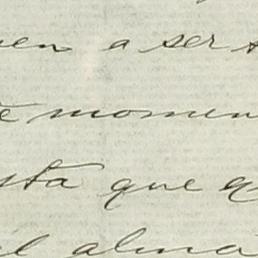 uen a ser
e momen
sta que q
el alma